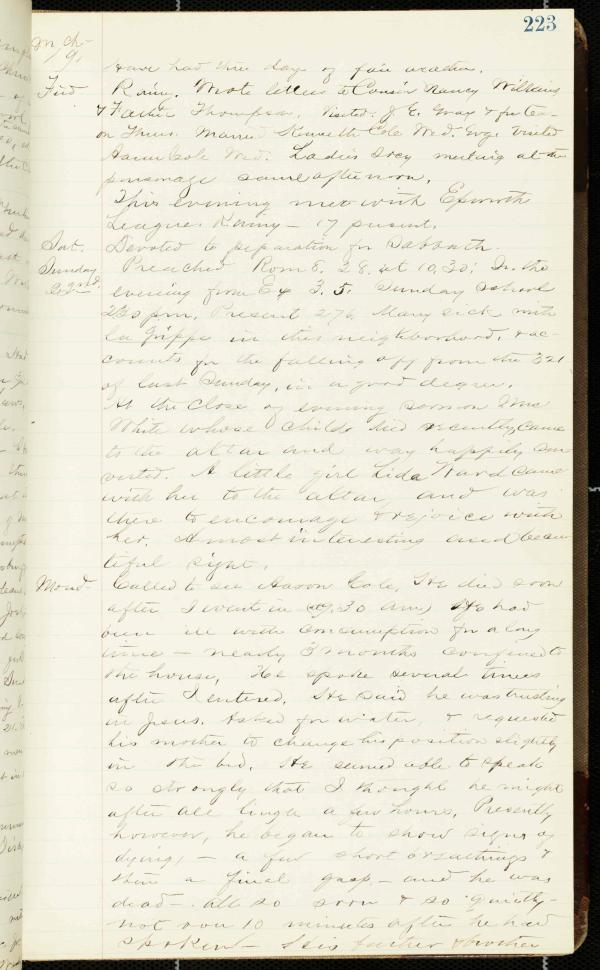 223
Mch
9.
Have had three days of fair weather.
Frid Rainy. Wrote letters to Cousin Nancy Wilkins
& Father Thompson. Visited J. E. Gray & for tea
on Thurs. Married Cole Wed. Evg. Visited
Aaron Cole Wed. Ladies Socy meeting at the
parsonage same afternoon.
This evening met with Epworth
League. Rainy – 17 present.
Sat. Devoted to preparation for Sabbath.
Sunday Preached Rom 8. 28. at 10.30. In the
22nd. evening from Ex 3. 5. Sunday School
2.30 pm. Present 276 Many sick with
la Grippe in this neighborhood, & ac-
counts for the falling off from the 321
of last Sunday, in a good degree.
At the close of evening sermon Mrs
White whose child died recently, came
to the altar and was happily con
verted. A little girl Lida Ward came
with her to the altar, and was
there to encourage & rejoice with
her. A most interesting and beau
tiful sight.
Mond- Called to see Aaron Cole, He died soon
after I went in 9.30 am, He had
been ill with consumption for a long
time – nearly 3 months confined to
the house, He spoke several times
after I entered. He said he was trusting
in Jesus. Asked for water, & requested
his mother to change his position slightly
in the bed. He seemed able to speak
so strongly that I thought he might
after all linger a few hours. Presently
however, he began to show signs of
dying, – a few short breathings &
then a final gasp – and he was
dead – all so soon & so quietly –
not over 10 minutes after he had
spoken – His father & brother